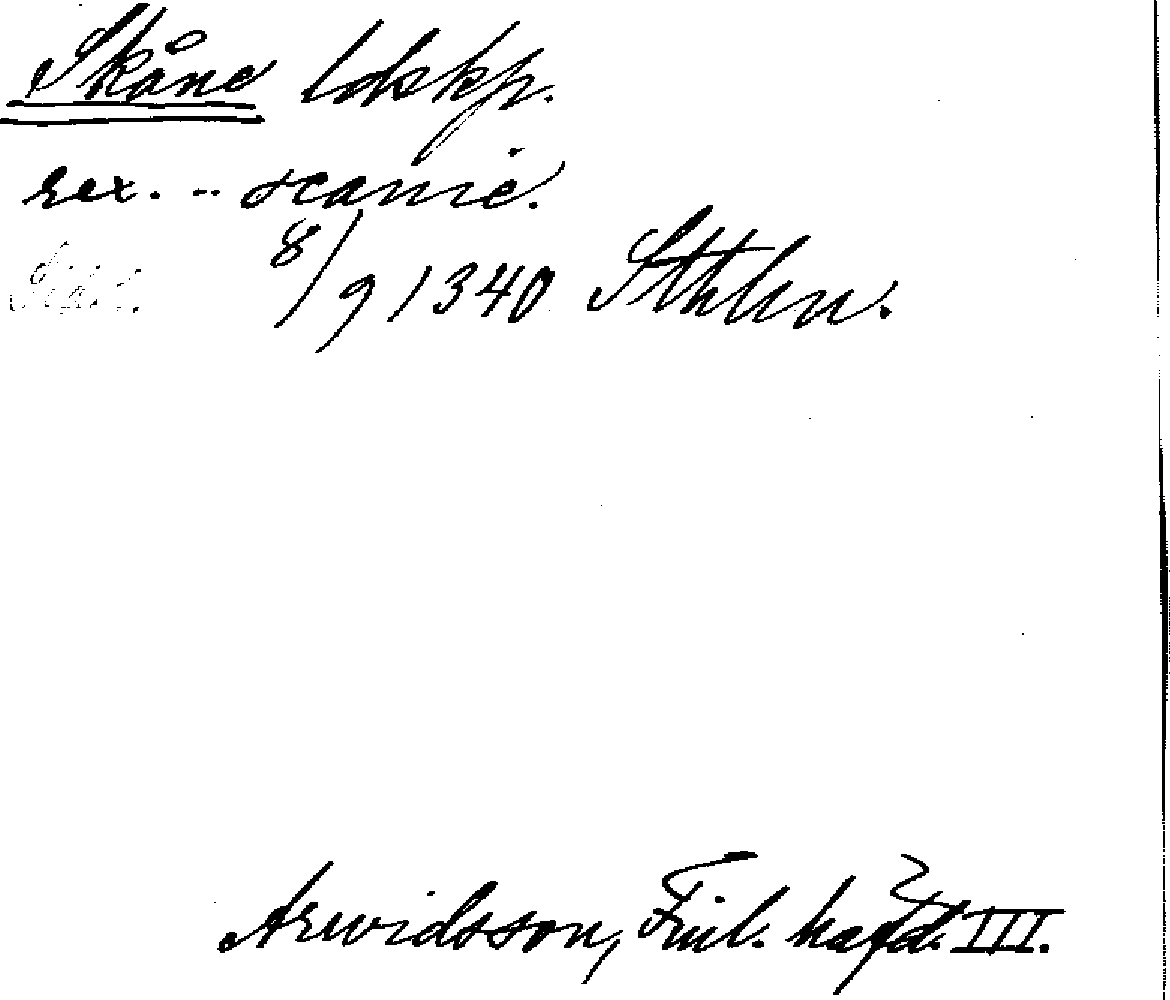 Skåne ldskp.
rex. -- scanie.
8/9 1340 Sthlm.
Arwidsson, Finl. häfd. III.